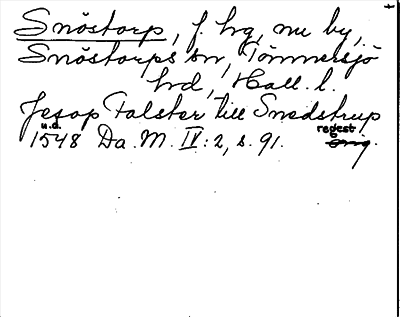 Snöstorp, f. hg, nu by,
Snöstorps sn, Tönnersjö
hd, Hall. l.
Jesop Falster till Snedstrup
u.d. regest
1548 Da. M. IV:2, s. 91. orig.